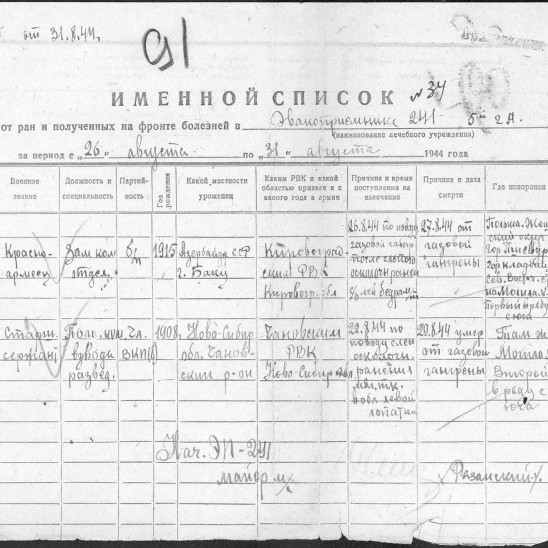 от 31.8.44.
91
ИМЕННОЙ СПИСОК №34
от ран и полученных на фронте болезней в Эвакоприемнике 241 5-г А.
(наименование лечебного учреждения)
за период с „26" августа по „31 августа 1944 года
Военное звание
Должность и специальность
Партий- ность
Год рождения
Какой местности уроженец
Каким РВК и какой областью призван и с какого года в армии
Причина и время поступления на излечение
Причина и дата смерти
Где похоронен
Красно-
армеец
Зам ком
отдел.
б/п
1915
Азербайдж ССР
г. Баку
Кировоград-
ский РВК
Кировогр. обл
26.8.44 по поводу
газовой гангр.
после слепого
осколочн ранения
27.8.44 от
газовой
гангрены
Польша
Гор кладбищ
Могила
Первый в ряду
с юга
Старш.
сержант
взвода
развед.
Чл.
ВКП(б)
1908
Ново-Сибир
обл. Чанов-
ский р-он
Чановским
РВК
Ново-Сибир обл
22.8.44 по
поводу слеп
осколочн.
ранения
мягк. тк.
в обл левой
лопатки
29.8.44 умер
от газовой
гангрены
Там ж
Могила
Второй
в ряду с
юга
Нач. ЭП-241
майор м/с